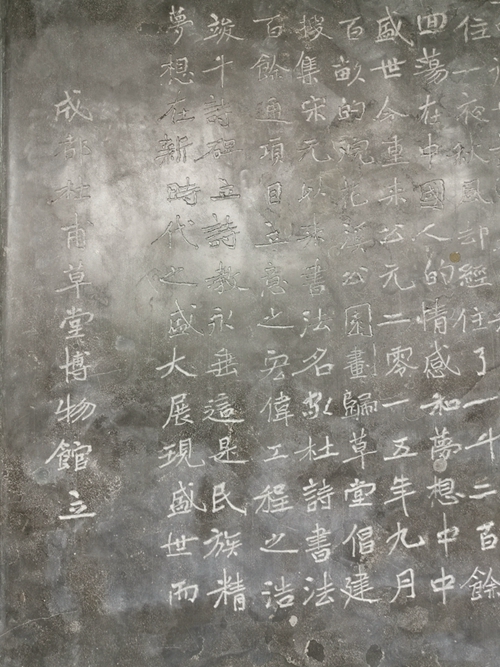 住一夜秋風卻經住了一千二百餘
回蕩在中國人的情感和夢想中中
盛世今重来公元二零一五年九月
百畝的浣花溪公園畫歸草堂倡建
搜集宋元以来書法名家杜詩書法
百餘通項目立意之宏偉工程之浩
竣斗詩碑立詩教永垂這是民族精
夢想在新時代之盛大展現盛世而
成都杜甫草堂博物館立